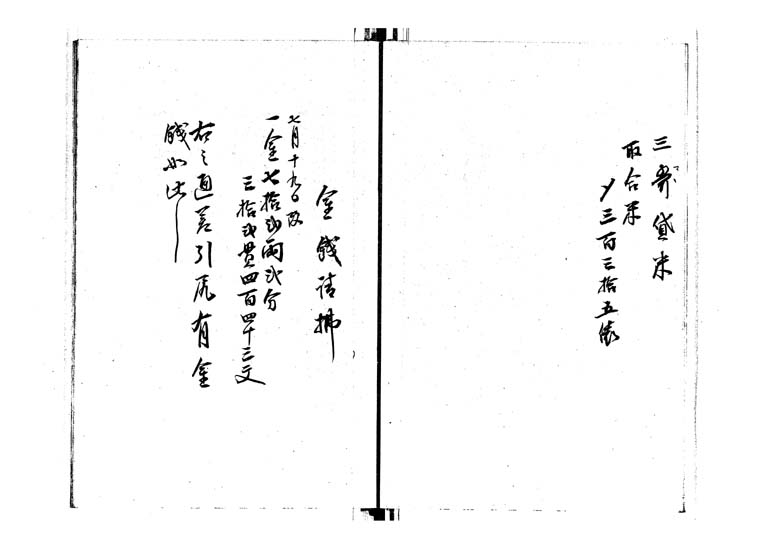 三番貸米
取合米
〆三百三拾五俵
金銭請払
七月十九日改
一金七拾弐両弐分
三拾弐貫四百四十三文
右之通差引尻有金
銭如此